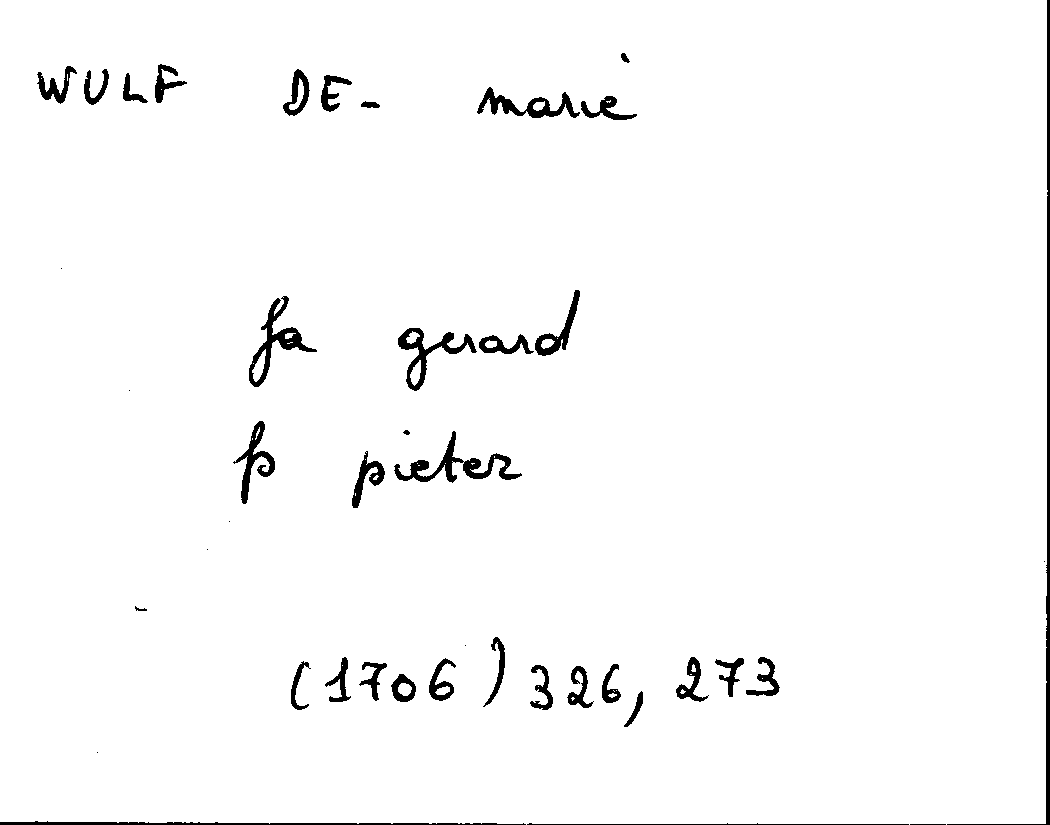 WULF DE- marie
fa gerard
fs pieter
(1706) 326, 273